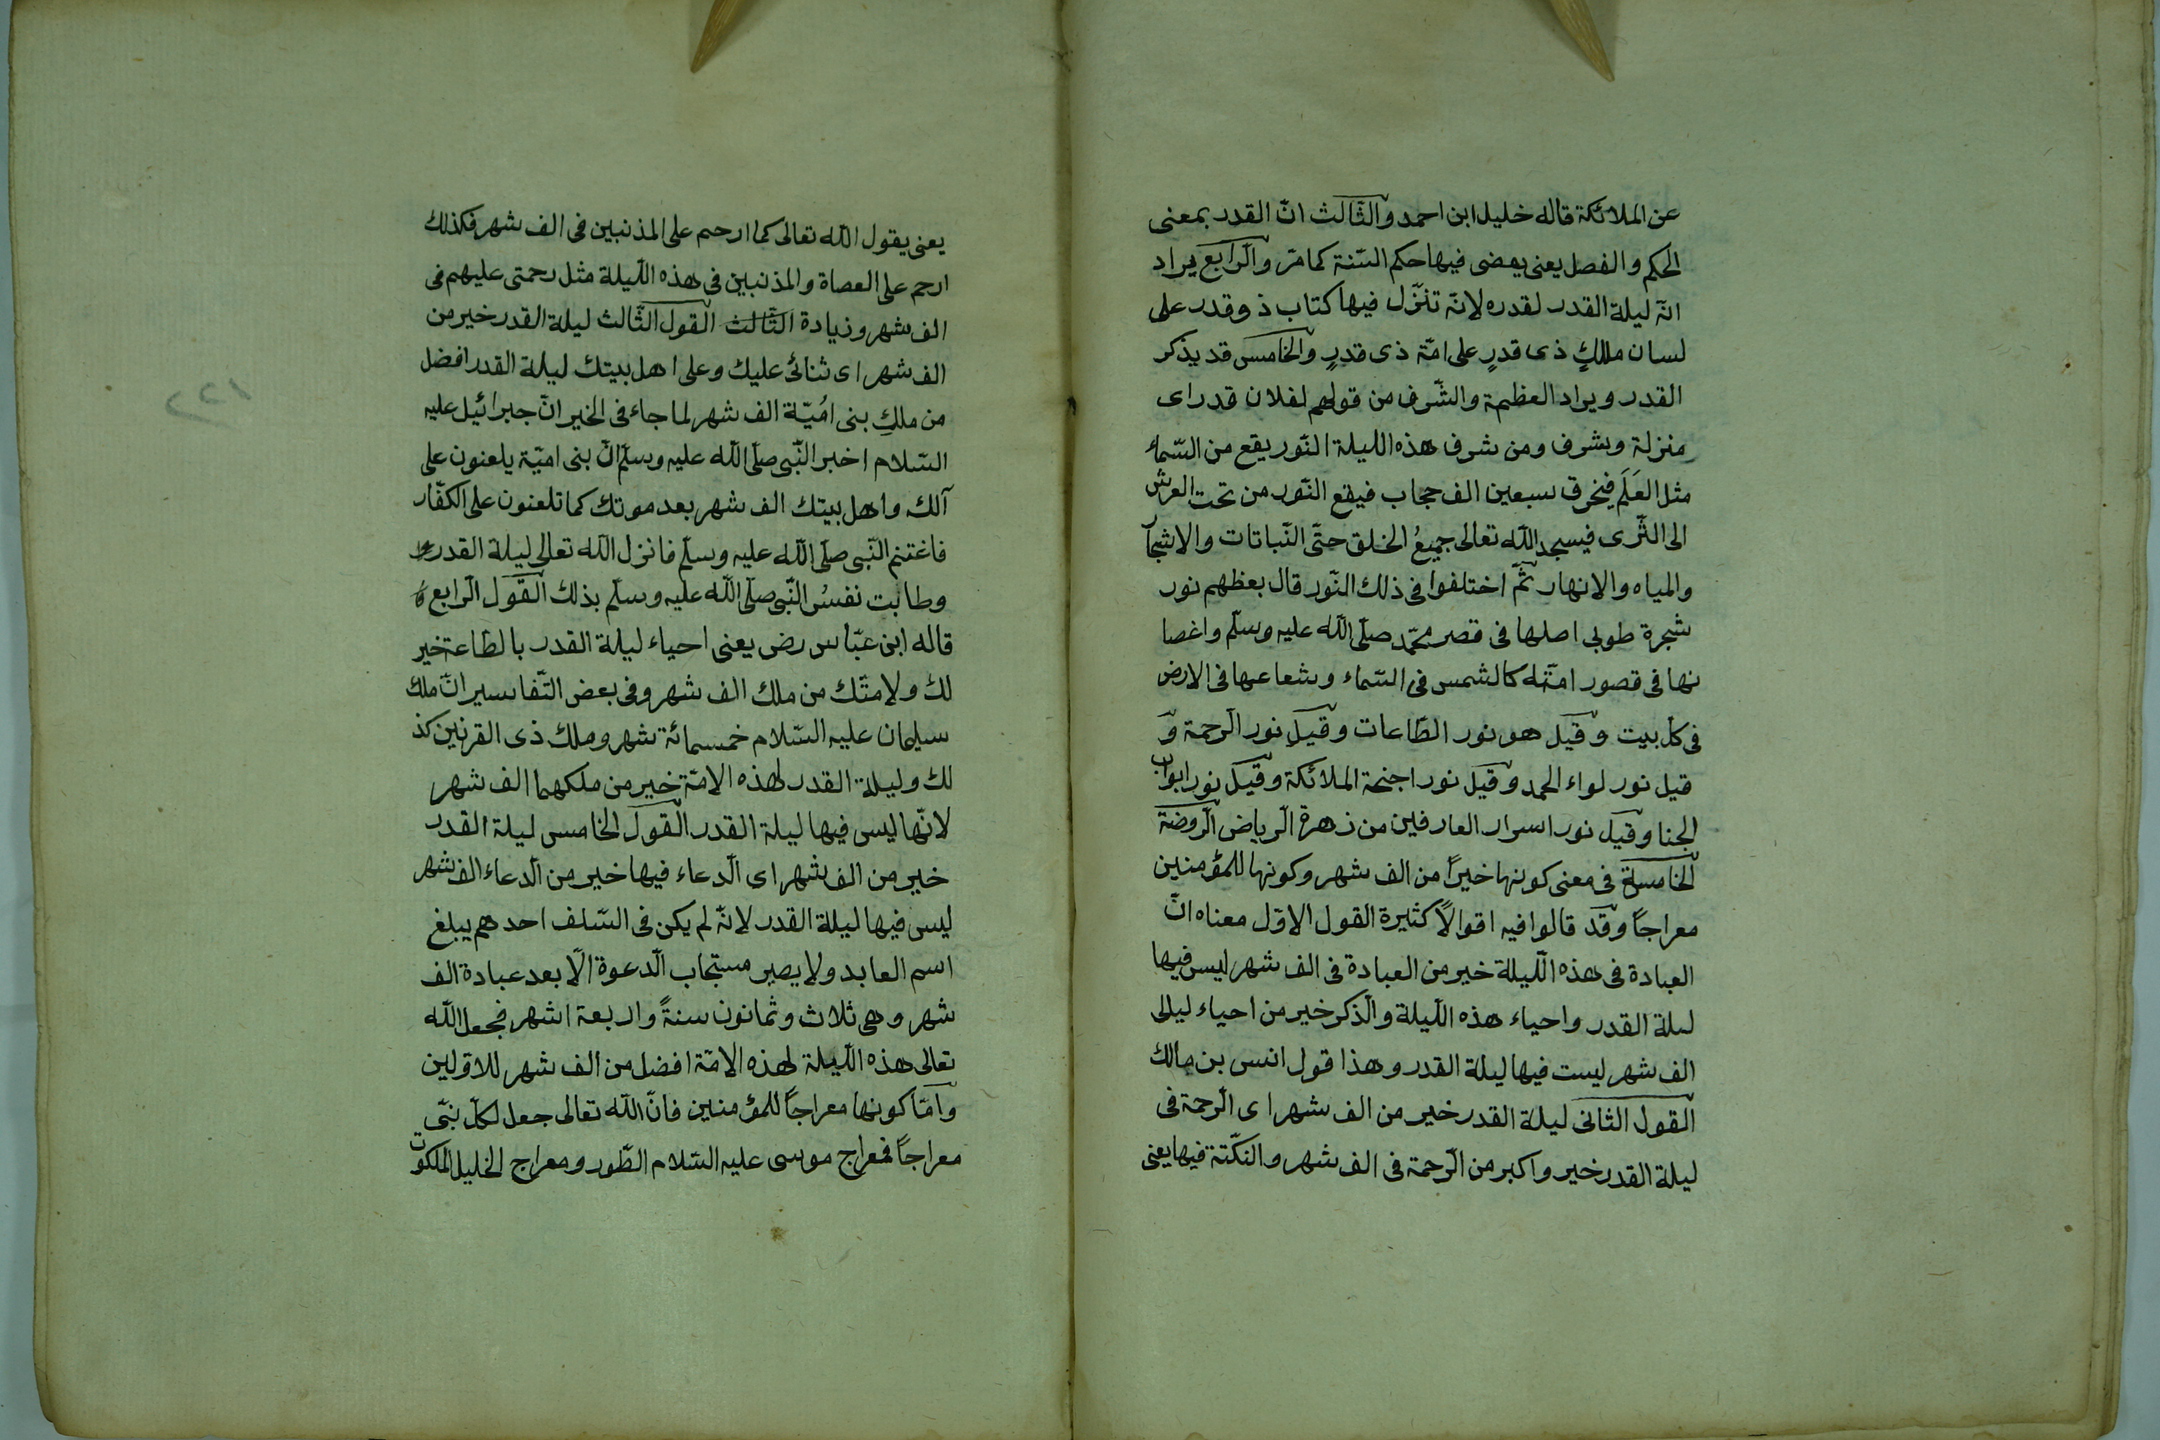 عن الملائكة قاله خليل ابن احمد والثّالث انّ القدر بمعنى
الحكم والفصل يعنى يمضى فيها حكم السّنة كما مرّ والرّابع يراد
انّه ليلة القدر لقدره لانّه تنزّل فيها كتاب ذو قدر على
لسان ملكٍ ذى قدرٍ على امّة ذى قدرٍ والخامس قد يذكر
القدر ويراد العظيمة والشّرف من قولهم لفلان قدر اى
منزلة وشرف ومن شرف هذه الليلة النّور يقع من السّماء
مثل العَلَم فيخرق سبعين الف حجاب فيقع النّور من تحت العرش
الى الثّرى فيسجد اللّه تعالى جميعُ الخلق حتّى النّباتات والاشجار
والمياه والانهار ثمّ اختلفوا فى ذلك النّور قال بعظهم نور
شجرة طوبى اصلها فى قصر محمّد صلّى اللّه عليه وسلّم واغصا
نها فى قصور امّته كالشمس فى السّماء وشعاعها فى الارض
فى كلّ بيت وقيل هو نور الطّاعات وقيل نور الرّحمة و
قيل نور لواء الحمد وقيل نور اجنحة الملائكة وقيل نور ابواب
الجنا وقيل نور اسرار العارفين من زهرة الرّياض الرّوضة
الخامسة فى معنى كونها خيرًا من الف شهر وكونها للمؤمنين
معراجًا وقد قالوا فيه اقوالًا كثيرة القول الاوّل معناه انّ
العبادة فى هذه اللّيلة خير من العبادة فى الف شهر ليس فيها
ليلة القدر واحياء هذه اللّيلة والذّكر خير من احياء ليالى
الف شهر ليست فيها ليلة القدر وهذا قول انس بن مالك
القول الثانى ليلة القدر خير من الف شهر اى الرّحمة فى
ليلة القدر خير واكبر من الرّحمة فى الف شهر والنكتة فيها يعنى
يعنى يقول اللّه تعالى كما ارحم على المذنبين فى الف شهر فكذلك
ارحم على العصاة والمذنبين فى هذه اللّيلة مثل رحمتى عليهم فى
الف شهر وزيادة الثّالث القول الثّالث ليلة القدر خير من
الف شهر اى ثنائى عليك وعلى اهل بيتك ليلة القدر افضل
من ملكِ بنى امُيّة الف شهر لما جاء فى الخبر انّ جبرائيل عليه
السّلام اخبر النّبى صلّى اللّه عليه وسلّم انّ بنى اميّة يلعنون على
آلك واهل بيتك الف شهر بعد موتك كما تلعنون على الكفّار
فاغتنم النّبى صلّى اللّه عليه وسلّم فانزل اللّه تعالى ليلة القدر
وطابت نفسُ النّبى صلّى اللّه عليه وسلّم بذلك القول الرّابع
قاله ابن عبّاس رض يعنى احياء ليلة القدر بالطّاعة خير
لك ولامتّك من ملك الف شهر وفى بعض التّفاسير انّ ملك
سليمان عليه السّلام خمسمائة شهر وملك ذى القرنين كذ
لك وليلة القدر لهذه الامّة خير من ملكهما الف شهر
لانّها ليس فيها ليلة القدر القول الخامس ليلة القدر
خير من الف شهر اى الدّعاء فيها خير من الدّعاء الف شهر
ليس فيها ليلة القدر لانّه لم يكن فى السّلف احدهم يبلغ
اسم العابد ولا يصير مستجاب الدّعوة الّا بعد عبادة الف
شهر وهى ثلاث وثمانون سنةً واربعة اشهر فجعل اللّه
تعالى هذه اللّيلة لهذه الامّة افضل من الف شهر للاوّلين
وامّا كونها معراجًا للمؤمنين فانّ اللّه تعالى جعل لكلّ نبّى
معراجًا فمعراج موسى عليه السّلام الطّور ومعراج الخليل الملكوت